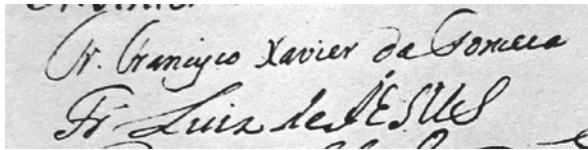 Fr. Francisco Xavier da Fonseca
Fr Luiz de JESUS